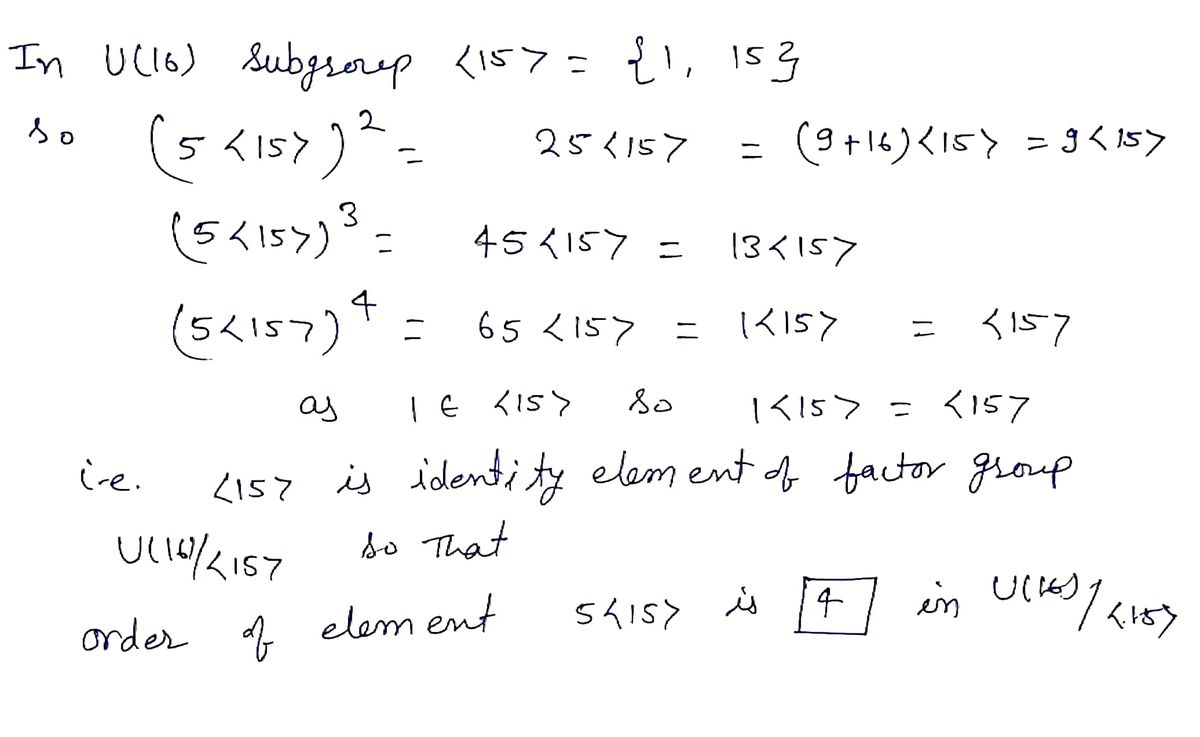 In U(16) Subgroup <15> = {1, 15}
so (5<15>)² = 25<15> = (9+16)<15> = 9<15>
(5<15>)³ = 45<15> = 13<15>
(5<15>)⁴ = 65<15> = 1<15> = <15>
as 1 ∈ <15> so 1<15> = <15>
i.e. <15> is identity element of factor group
U(16)/<15> so that
order of element 5<15> is 4 in U(16)/<15>